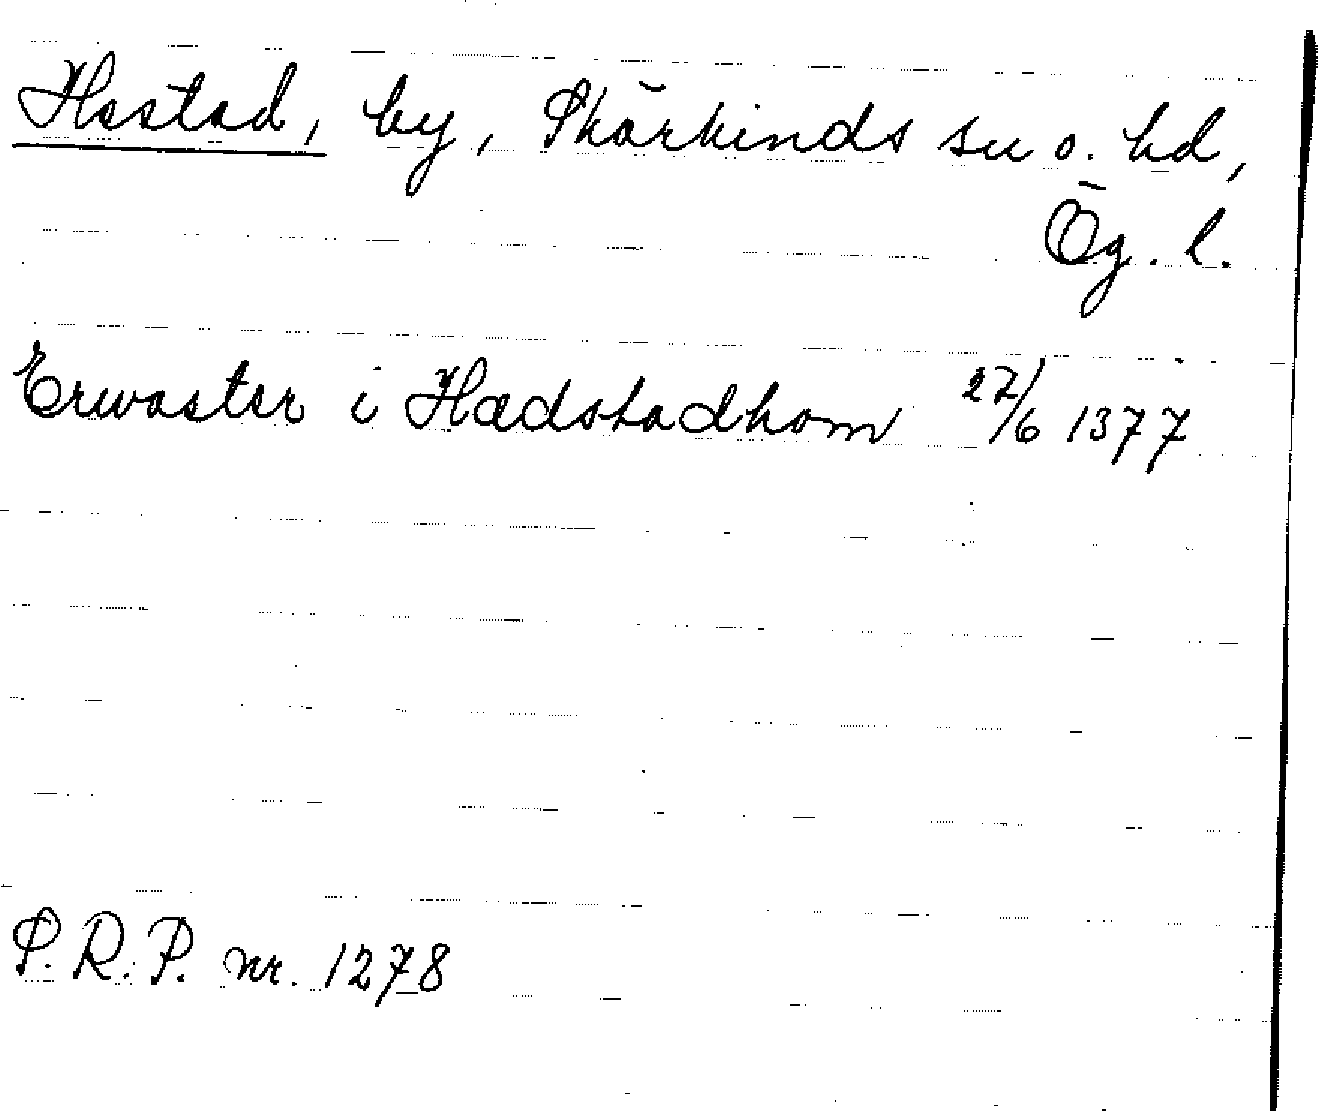 Hastad, by, Skärkinds sn o. hd,
Ög. l.
Erwaster i Hædstadhom 27/6 1377
S.R.P. nr. 1278